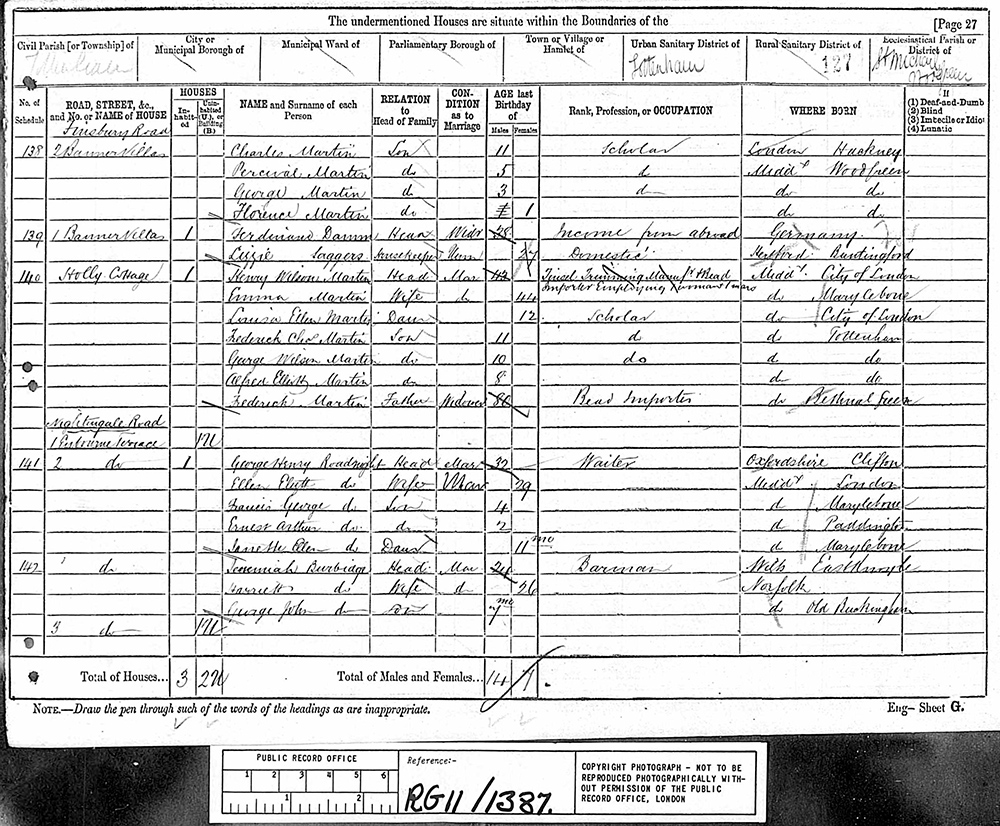 The undermentioned Houses are situate within the Boundaries of the [Page 27
Civil Parish [or Township] of City or Municipal Borough of Municipal Ward of Parliamentary Borough of Town or Village or Hamlet of Urban Sanitary District of Rural Sanitary District of Ecclesiastical Parish or District of
Tottenham Tottenham 127 St Michael Woodgreen
No. of Schedule ROAD, STREET, &c., and No. or NAME of HOUSE HOUSES Inhabited Uninhabited (U.), or Building (B.) NAME and Surname of each Person RELATION to Head of Family CONDITION as to Marriage AGE last Birthday of Males Females Rank, Profession, or OCCUPATION WHERE BORN If (1) Deaf-and-Dumb (2) Blind (3) Imbecile or Idiot (4) Lunatic
Finsbury Road
138 2 Banner Villas Charles Martin Son 11 Scholar London Hackney
Percival Martin do 5 do Middx Woodgreen
George Martin do 3 do do do
Florence Martin do 1 do do
139 1 Banner Villas 1 Ferdinand Damm Head Widr 28 Income from abroad Germany
Lizzie Saggers Housekeeper Unm 27 Domestic Hertford Buntingford
140 Holly Cottage 1 Henry Wilson Martin Head Mar 42 Tinsel Trimming Manufr & Bead Importer Employing Middx City of London
Emma Martin Wife do 44 do Marylebone
Louisa Ellen Martin Daur 12 Scholar do City of London
Frederick Chas Martin Son 11 do do Tottenham
George Wilson Martin do 10 do do do
Alfred Elliott Martin do 8 do do
Frederick Martin Father Widower 80 Bead Importer do Bethnal Green
Nightingale Road
1 Terrace 1U
141 2 do 1 George Henry Roadnight Head Mar 32 Waiter Oxfordshire Clifton
Ellen Eliott do Wife Mar 29 Middx London
Francis George do Son 4 do Marylebone
Ernest Arthur do do 2 do Paddington
Janette Ellen do Daur 11 mo do Marylebone
142 do Jeremiah Burbidge Head Mar 24 Barman Wilts East Knoyle
Harriett do Wife do 26 Norfolk
George John do Son 7 mo do Old Buckingham
3 do 1U
Total of Houses... 3 2U Total of Males and Females... 14 7
NOTE.—Draw the pen through such of the words of the headings as are inappropriate. Eng– Sheet G.
PUBLIC RECORD OFFICE
1 2 3 4 5 6
1 2
Reference:-
RG11/1387.
COPYRIGHT PHOTOGRAPH - NOT TO BE
REPRODUCED PHOTOGRAPHICALLY WITH-
OUT PERMISSION OF THE PUBLIC
RECORD OFFICE, LONDON